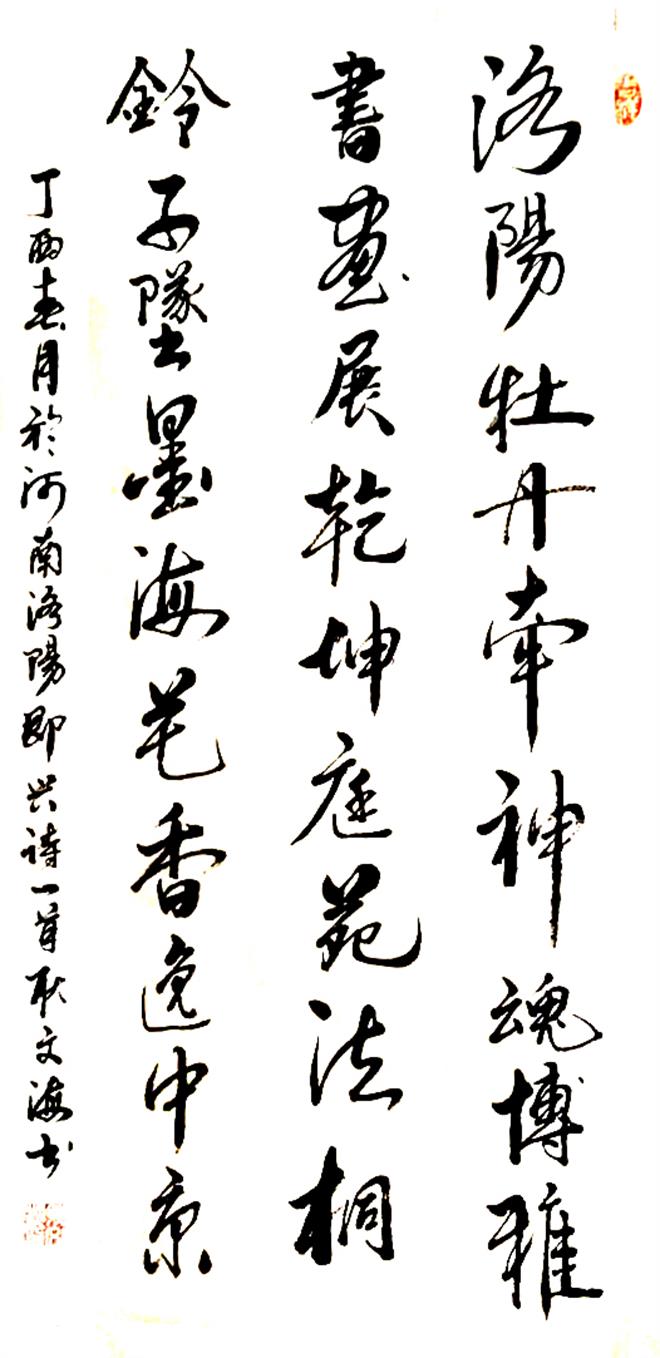 洛陽牡丹牽神魂博雅
書畫展乾坤庭苑法桐
鈴子墜墨海花香逸中原
丁酉春月於河南洛陽即兴诗一首耿文海书